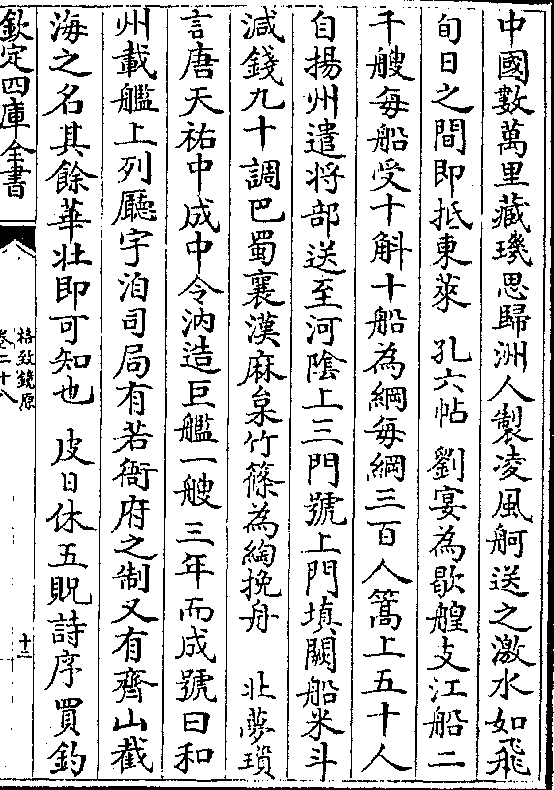 中國數萬里藏璣思歸洲人製凌風舸送之激水如飛
旬日之間即抵東萊　孔六帖　劉宴為歇艎支江船二
千艘每船受十斛十船為綱每綱三百人篙上五十人
自揚州遣將部送至河隂上三門號上門填闕船米斗
減錢九十調巴蜀襄漢麻枲竹篠為綯挽舟　北夢瑣
言唐天祐中成中令汭造巨艦一艘三年而成號曰和
州載艦上列㕔宇洎司局有若衙府之制又有齊山截
海之名其餘華壯即可知也　皮日休五貺詩序買釣
欽定四庫全書
格致鏡原
卷二十八
十二